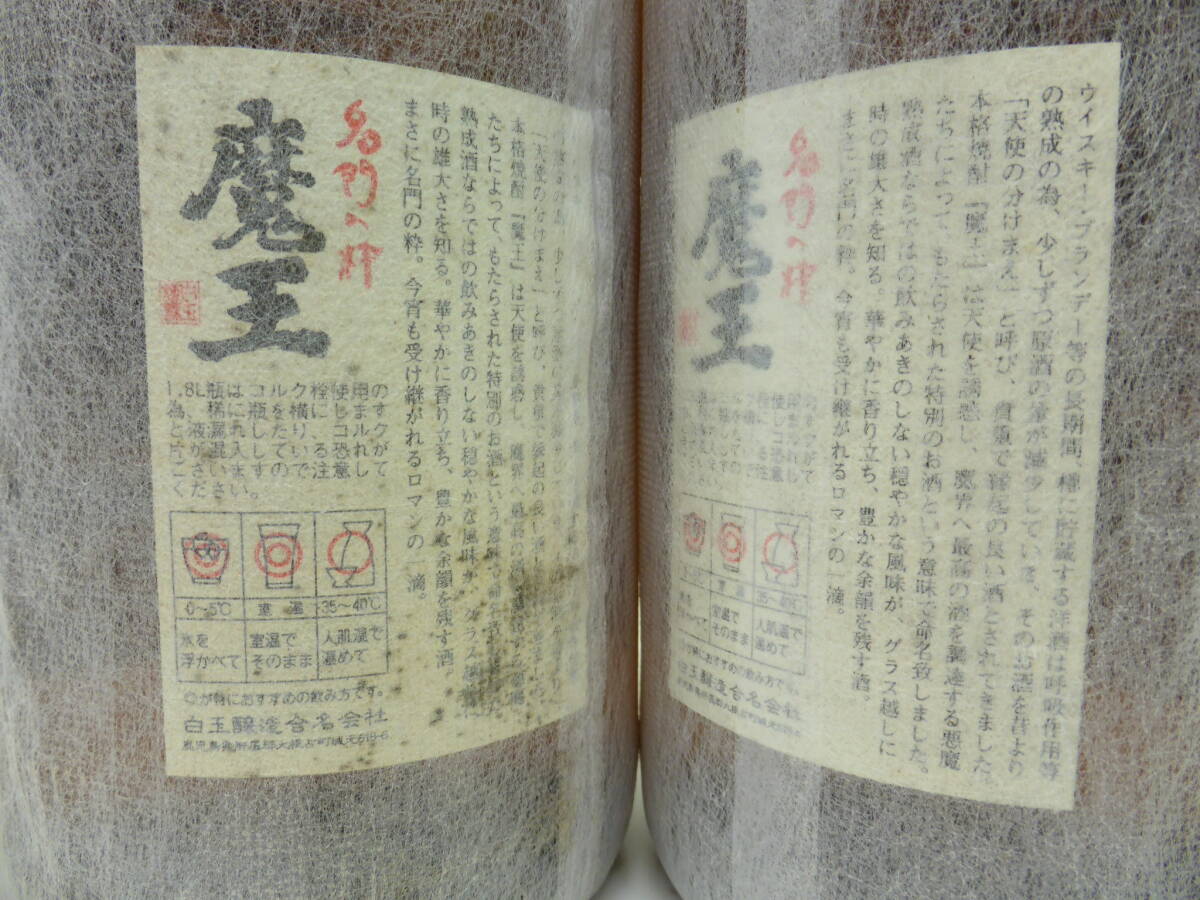 名門の粋
魔王
「天使の分けまえ」と呼び、
本格焼酎『魔王』は天使を誘惑し、魔界へ
たちによって、もたらされた特別のお酒という意味で
熟成酒ならではの飲みあきのしない穏やかな風味が、グラス越しに
時の雄大さを知る。華やかに香り立ち、豊かな余韻を残す酒。
まさに名門の粋。今宵も受け継がれるロマンの一滴。
1.8L瓶はコルク栓使用の
と液漏れしたり、コルク
ください。
0~5℃ 室温 35~40℃
氷を浮かべて 室温でそのまま 人肌温で温めて
◎が特におすすめの飲み方です。
白玉醸造合名会社
鹿児島県肝属郡大根占町城元618-6
ウイスキー・ブランデー等の長期間、樽に貯蔵する洋酒は呼吸作用等
の熟成の為、少しずつ原酒の量が減少していき、そのお酒を昔より
「天使の分けまえ」と呼び、貴重で縁起の良い酒とされてきました。
本格焼酎『魔王』は天使を誘惑し、魔界へ最高の酒を調達する悪魔
たちによって、もたらされた特別のお酒という意味で命名致しました。
熟成酒ならではの飲みあきのしない穏やかな風味が、グラス越しに
時の雄大さを知る。華やかに香り立ち、豊かな余韻を残す酒。
まさに名門の粋。今宵も受け継がれるロマンの一滴。
名門の粋
魔王
室温 35~40℃
室温でそのまま 人肌温で温めて
特におすすめの飲み方です。
白玉醸造合名会社